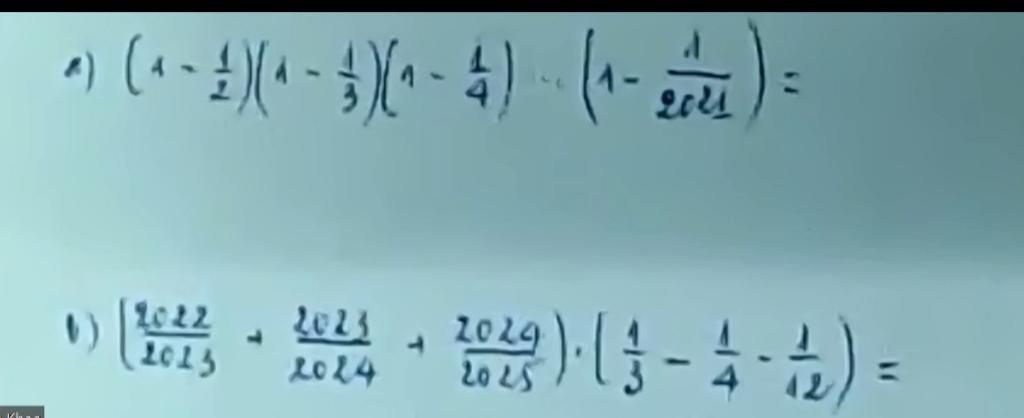 a) (1 - 1/2)(1 - 1/3)(1 - 1/4) ... (1 - 1/2021) =
b) (2022/2023 + 2023/2024 + 2024/2025) · (1/3 - 1/4 - 1/12) =